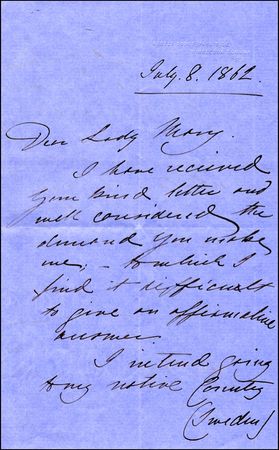 July. 8. 1862.
Dear Lady Mary.
I have recieved
your kind letter and
well considered the
demand you make
me, - to which I
find it difficult
to give an affirmative
answer.
I intend going
to my native Country
(Sweden)